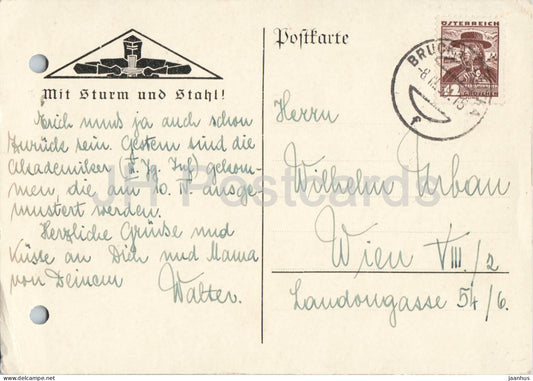 Mit Sturm und Stahl!
Erich muß ja auch schon
zurück sein. Gestern sind die
Akademiker (II. Jg. Inf.) gekom-
men, die am 10. IV. ausge-
mustert werden.
Herzliche Grüße und
Küsse an Dich und Mama
von Deinem Walter.
Postkarte
ÖSTERREICH
BRUCK
12
Herrn
Wilhelm Urban
Wien VIII./2
Laudongasse 54/6.
JH Postcards
www.jaanhus.com